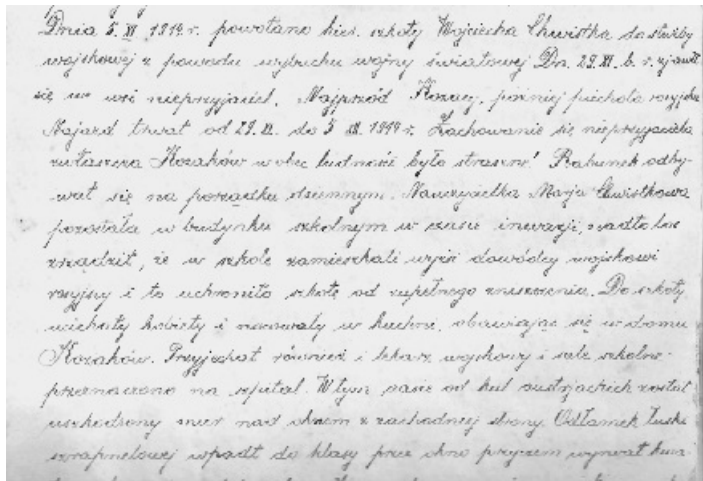 Dnia 5. XI 1914 r. powołano kier. szkoły Wojciecha Chwistka do służby
wojskowej z powodu wybuchu wojny światowej Dn. 29. XI. b. r. zjawił
się we wsi nieprzyjaciel. Najprzód Kozacy, później piechota rosyjska
Najazd trwał od 29. XI. do 5 XII. 1914 r. Zachowanie się nieprzyjaciela
zwłaszcza Kozaków wobec ludności było straszne! Rabunek odby-
wał się na porządku dziennym. Nauczycielka Marja Chwistkowa
pozostała w budynku szkolnym w czasie inwazji, nadto los
zrządził, że w szkole zamieszkali wyżsi dowódcy wojskowi
rosyjscy i to uchroniło szkołę od zupełnego zniszczenia. Do szkoły
uciekały kobiety i nocowały w kuchni, obawiając się w domu
Kozaków. Przyjechał również i lekarz wojskowy i salę szkolną
przeznaczono na szpital. W tym czasie od kul austrjackich został
uszkodzony mur nad oknem z zachodniej strony. Odłamek łuski
szrapnelowej wpadł do klasy przez okno przyczem wyrwał